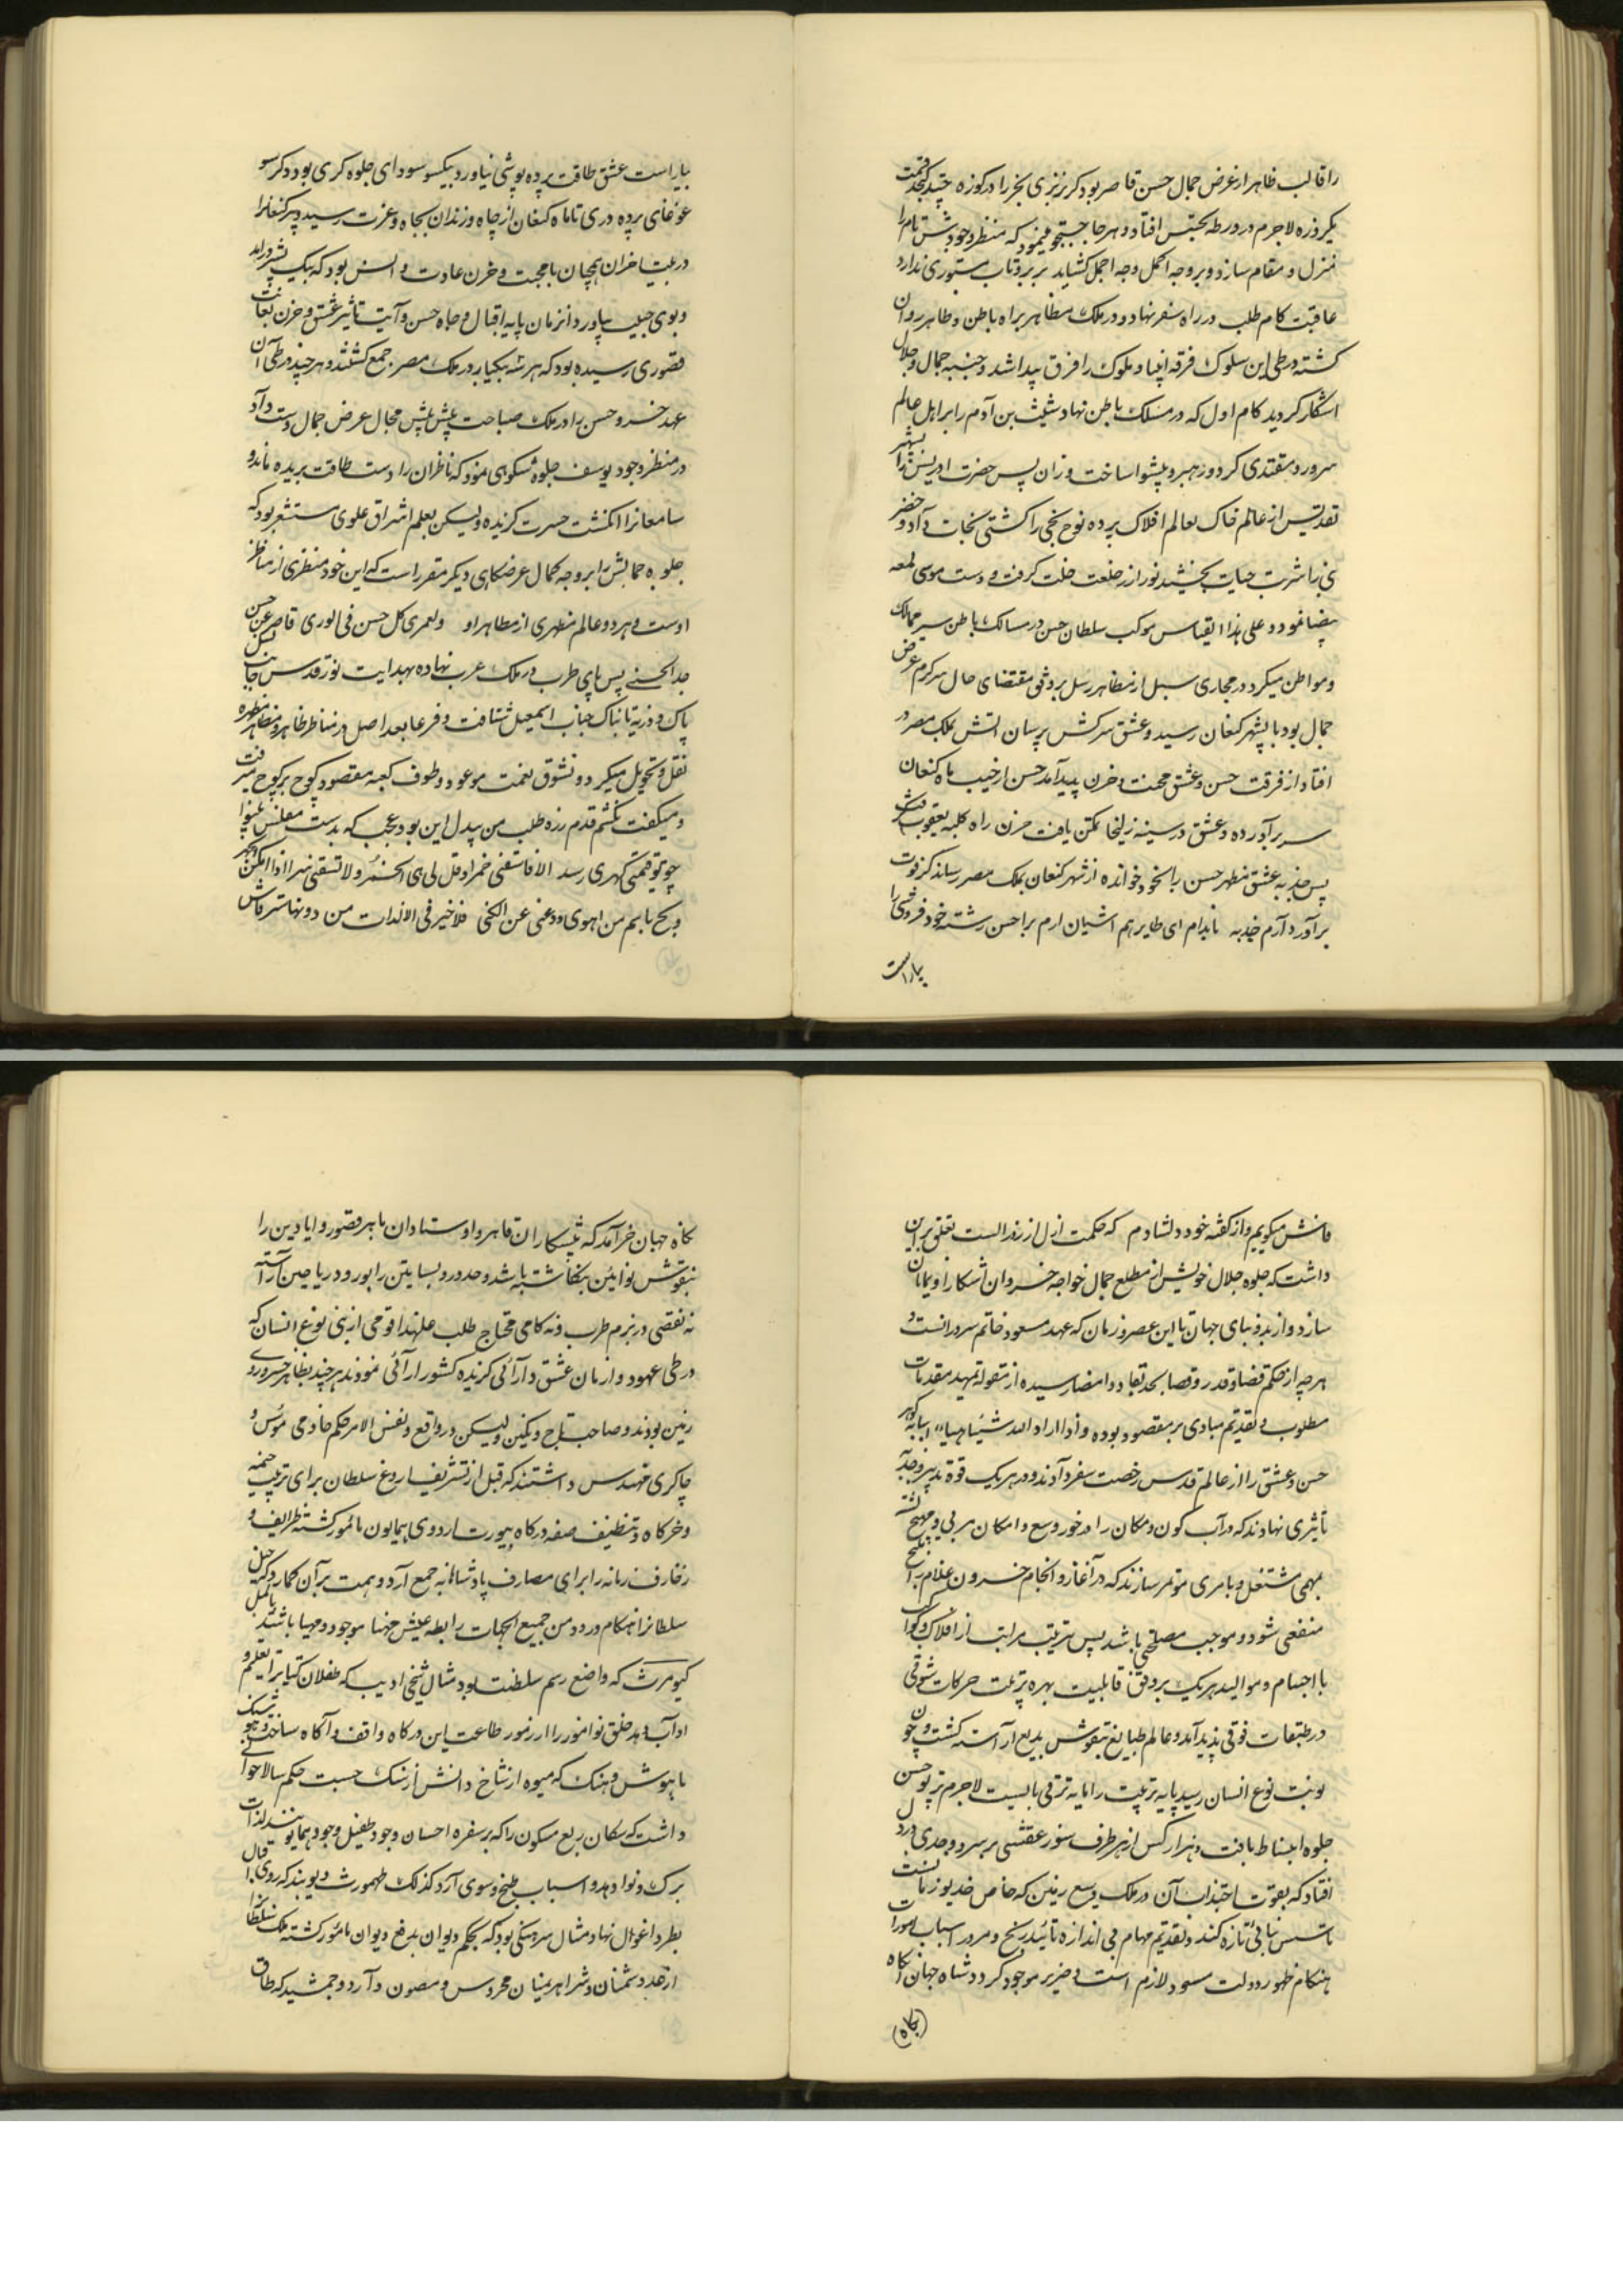 را قالب ظاهر از عرض جمال حسن قاصر بود گر بریزی بحر را در کوزه چند گنجد قسمت
یکروزه لاجرم در ورطه تجسس افتاد و هر جا جستجو مینمود که منظر وجودش تام را
منزل و مقام سازد و بر وجه اکمل وجه اجمل گشاید پریرو تاب مستوری ندارد
عاقبت کام طلب در راه سفر نهاد و در ملک مظاهر براه باطن و ظاهر روان
گشته در طی این سلوک فرقه انبیا و ملوک را فرق پیدا شد و جنبه جمال و جلال
اشکار گردید کام اول که در مسلک باطن نهاد شیث بن آدم را بر اهل عالم
سرور و مقتدی کرد و رهبر و پیشوا ساخت و زان پس حضرت ادریس را بشهر
تقدیس از عالم خاک بعالم افلاک برده نوح نجی را کشتی نجات داد و خضر
نبی را شربت حیات بخشید نور از خلعت خلت گرفت و دست موسی لمعه
بیضا نمود و علی هذا القیاس موکب سلطان حسن در مسالک باطن سیر ممالک
و مواطن میکرد و در مجاری سبل از مظاهر رسل بر وفق مقتضای حال سرگرم عرض
جمال بود تا بشهر کنعان رسید و عشق سرکش پرسان اتش بملک مصر در
افتاد از فرقت حسن و عشق محنت و حزن پدید آمد حسن از جیب ماه کنعان
سر برآورده و عشق در سینه زلیخا تمکن یافت حزن راه کلبه یعقوب گرفت
پس جذبه عشق مظهر حسن را بخود خوانده از شهر کنعان بملک مصر رساند کزفوت
برآورد آرم جذبه تا بدام ای طایر هم آشیان ارم برا حسن رشته خود فروشی را
بیاراست
بیاراست عشق طاقت پرده پوشی نیاورد بیکسو سودای جلوه گری بود و دگرسو
غوغای پرده دری تا ماه کنعان از چاه و زندان بجاه و عزت رسید و پیر کنعانرا
در بیت احزان همچنان با محبت و حزن عادت و انس بود که پیک بشیر درآمد
و بوی حبیب بیاورد آنزمان پایه اقبال و جاه حسن و آیت تاثیر عشق و حزن بغایت
قصوری رسیده بود که هر سه بیکبار در ملک مصر جمع گشتند و هر چند در طی آن
عهد خسرو حسن را در ملک صباحت بیش از پیش مجال عرض جمال دست داد
در منظر وجود یوسف جلوه شکوهی نمود که ناظران را دست طاقت بریده ماند و
سامعانرا انگشت حسرت گزیده ولیکن بعلم اشراق علوی مستشعر بود که
جلوه جمالش را بر وجه کمال عرضگاهی دیگر مقرر است که این خود منظری از مناظر
اوست و هر دو عالم مظهری از مظاهر او ولعمری کل حسن فی الوری قاصر عن حسن
پس پای طرب در ملک عرب نهاده بهدایت نور قدس جانب
پاک و ذریه تابناک جناب اسمعیل شتافت و فرعا بعد اصل در مناظر طاهره و مظاهر مطهره
نقل و تحویل میکرد و بشوق نعمت موعود و طوف کعبه مقصود کوچ بر کوچ میرفت
و میگفت نکشم قدم ز ره طلب من بیدل این بود و عجب که بدست مفلس بینوا
چو تو قیمتی گهری رسد الا فاسقنی خمرا و قل لی هی الخمر ولا تسقنی سرا اذا امکن الجهر
وبح باسم من اهوی ودعنی عن الکنی فلا خیر فی اللذات من دونها ستر فاش
فاش میگویم و از گفته خود دلشادم که حکمت ازل از روز الست تعلق بر این
داشت که جلوه جلال خویش از مطلع جمال خواجه خسروان آشکارا و نمایان
سازد و از بدو بنای جهان تا این عصر و زمان که عهد مسعود خاتم سرورانست و
هر چه از حکم قضا و قدر و قصا بحد نفاذ و امضا رسیده از مقوله تمهید مقدمات
مطلوب و تقدیم مبادی بر مقصود بوده و اذا اراد الله شیئا هیأ اسبابه گوهر
حسن و عشق را از عالم قدس رخصت سفر دادند و در هر یک قوه تدبیر و جذبه
تأثیری نهادند که در آب کون و مکان را در خور وسع و امکان مربی و مهیج گشته
بمهمی مشتغل و بامری موتمر سازند که در آغاز و انجام خسرون اعلام را
منفعی شود و موجب مصلحتی باشد پس بترتیب مراتب از افلاک و کواکب
با اجسام و موالید هر یک بر وفق قابلیت بهره تربیت حرکات شوقی
در طبقات فوقی پدید آمد و عالم طبایع بنقوش بدیع آراسته گشت و چون
نوبت نوع انسان رسید پایه تربیت را مایه ترقی بایست لاجرم پرتو حسن
جلوه انبساط یافت و هزار کس از هر طرف شور عشقش بر سر و وجدی در دل
افتاد که بقوت اجتذاب آن در ملک وسیع زمین که خاص خدیو زمانست
تاسیس بنائی تازه کند و تقدیم مهام بی اندازه تا بتدریج و مرور اسباب امورات
هنگام ظهور دولت مسعود لازم است و ضرور موجود گردد و شاه جهان آگاه
(نگاه)
نگاه جهان خرآمد که پیشکاران قاهر و اوستادان ماهر قصور و ایادین را
بنقوش نوآیین بنگاشته باشد و حدود و بساتین را بورود و ریاحین آراسته
نه نقصی در بزم طرب و نه کامی محتاج طلب علیهذا قومی از بنی نوع انسان که
در طی عهود و ازمان عشق دارائی گزیده کشور ارائی نمودند هر چند بظاهر خسرو روی
زمین بودند و صاحب تاج و نگین ولیکن در واقع و نفس الامر حکم خادمی مؤسس و
چاکری مهندس داشتند که قبل از تشریف اروغ سلطان برای ترتیب خیمه
و خرگاه و تنظیف صفه درگاه بیورت اردوی همایون مأمور گشته ظرایف و
زخارف زمانه را برای مصارف پادشاهانه جمع آرد و همت بر آن گمارد که خیل
سلطانرا هنگام ورود من جمیع الجهات رابطه عیش مهنا موجود و مهیا باشد بالمثل
کیومرث که واضع رسم سلطنت بود بمثال شیخی ادیب که طفلان کتاب را تعلیم
اداب دهد خلق نواموز را از رموز طاعت این درگاه واقف و آگاه ساخت و هوشنگ
باهوش و هنگ که میوه از شاخ دانش آرنگ حسبت حکم سالار خوانی
داشت که سکان ربع مسکون را که بر سفره احسان وجود طفیل وجود همایونند لذات
برگ و نوا دهد و اسباب طبخ و سوی آرد کذلک طهمورث دیوبند که روی قتال
بطرد اغوال نهاد مثال سرهنگی بود که بحکم دیوان بدفع دیوان مأمور گشته ملک سلطانرا
از قصد دشمنان و شر اهریمنان محروس و مصون دارد و جمشید که طاق